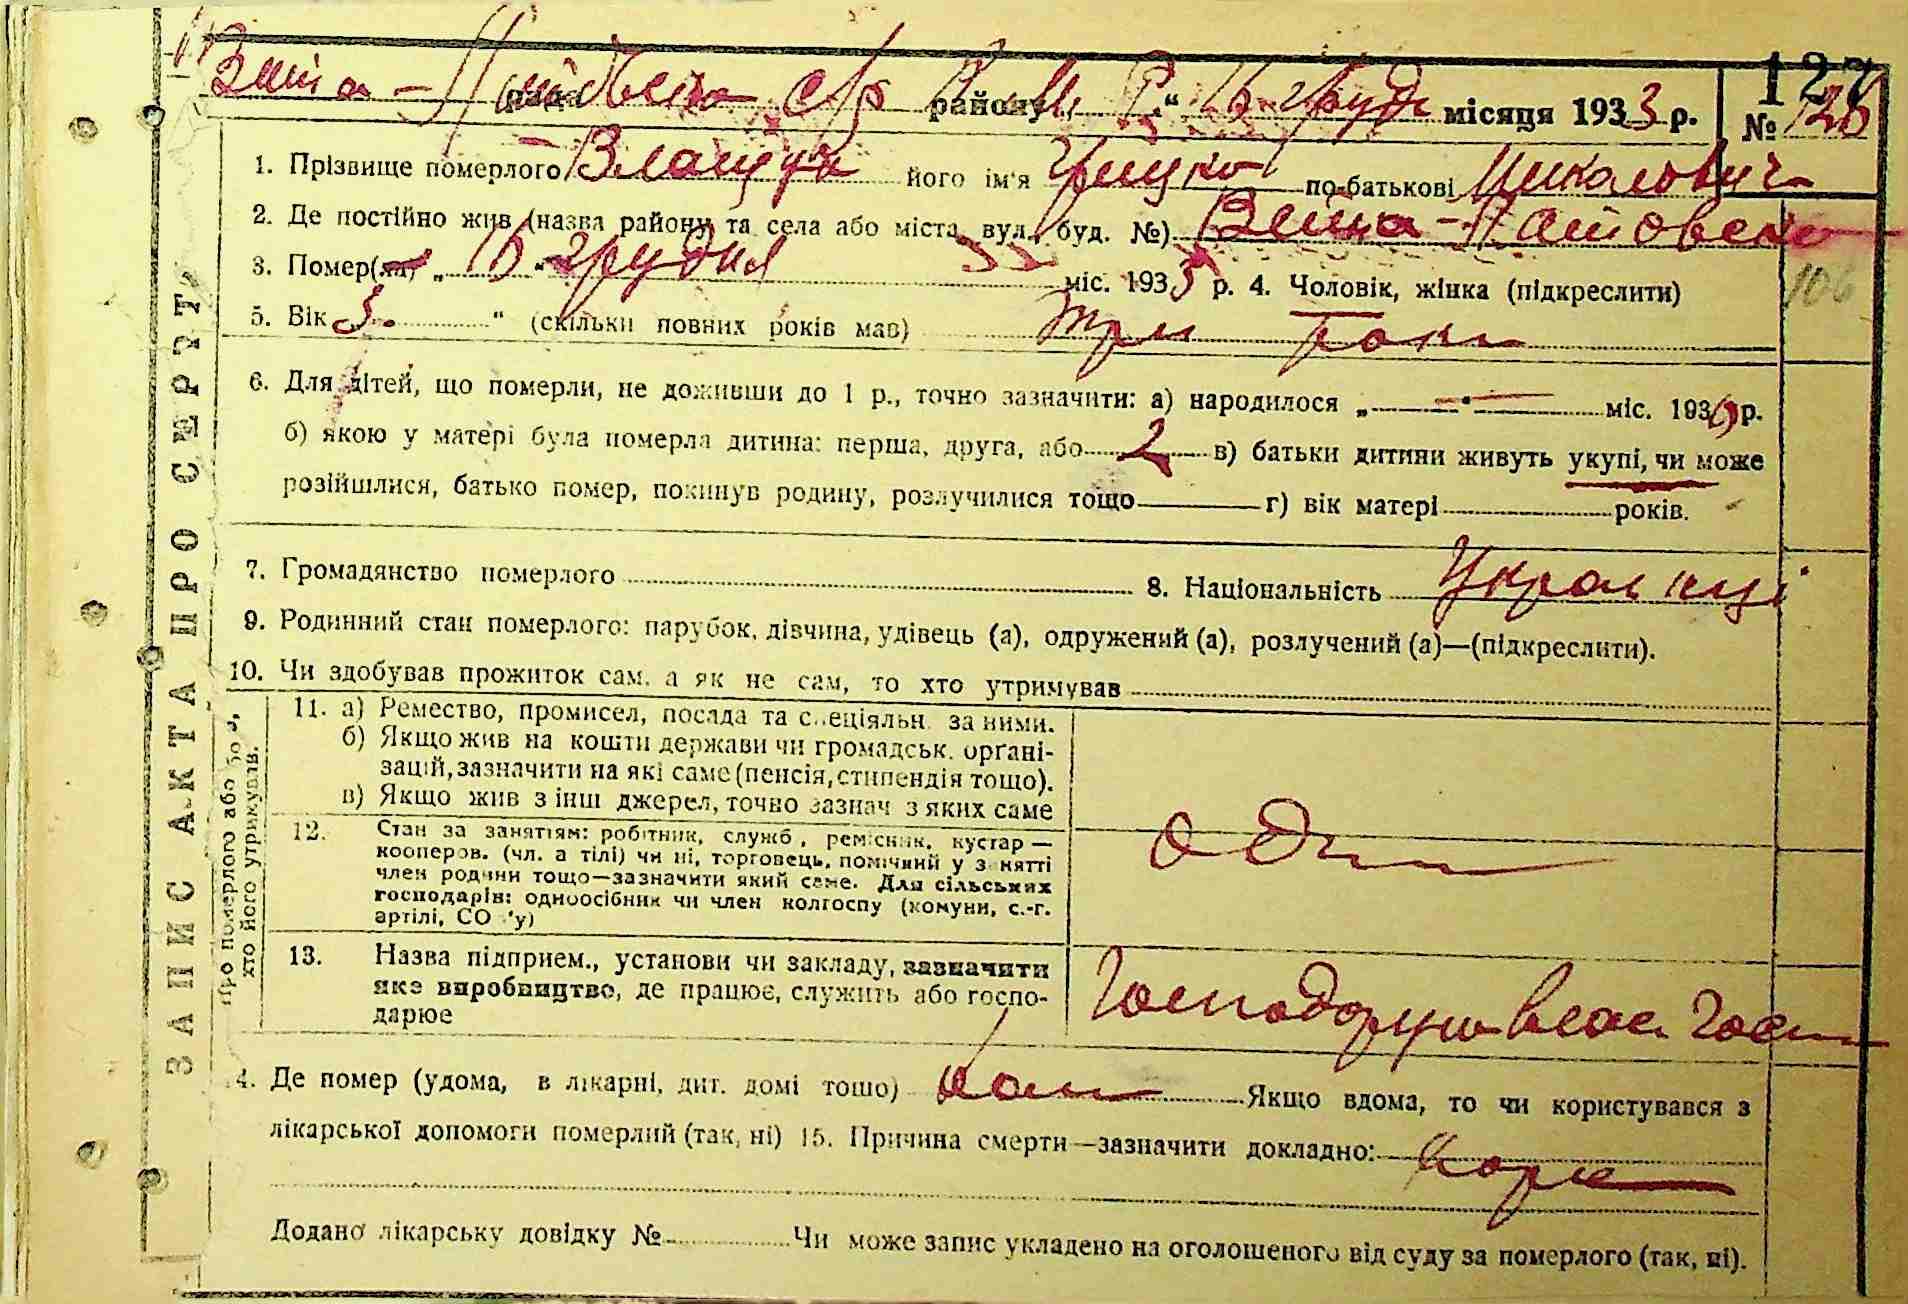 127
Вита-Поштовська с/р району К. " 16 " грудн місяця 1933 р. № 126
1. Прізвище померлого Влащук його ім'я Грицко по-батькові Миколович
2. Де постійно жив (назва району та села або міста, вул., буд. №) Вита-Поштовська
3. Помер(ла) „ 16 " грудня міс. 1933 р. 4. Чоловік, жінка (підкреслити)
106
5. Вік 3. " (скільки повних років мав) три роки
6. Для дітей, що померли, не доживши до 1 р., точно зазначити: а) народилося „ " міс. 1930 р.
б) якою у матері була померла дитина: перша, друга, або 2 в) батьки дитини живуть укупі, чи може
розійшлися, батько помер, покинув родину, розлучилися тощо г) вік матері років.
7. Громадянство померлого 8. Національність Українці
9. Родинний стан померлого: парубок, дівчина, удівець (а), одружений (а), розлучений (а)—(підкреслити).
10. Чи здобував прожиток сам, а як не сам, то хто утримував
11. а) Ремество, промисел, посада та спеціяльн. за ними.
б) Якщо жив на кошти держави чи громадськ. органі-
зацій, зазначити на які саме (пенсія, стипендія тощо).
в) Якщо жив з інш джерел, точно зазнач з яких саме
12. Стан за заняттям: робітник, служб, ремісник, кустар —
кооперов. (чл. а тілі) чи ні, торговець, помічний у занятті
член родини тощо—зазначити який саме. Для сільських
господарів: одноосібник чи член колгоспу (комуни, с.-г.
артілі, СО 'у)
один
13. Назва підприєм., установи чи закладу, зазначити
яке виробництво, де працює, служить або госпо-
дарює
Господорую власн госп
14. Де помер (удома, в лікарні, дит. домі тощо) Якщо вдома, то чи користувався з
лікарської допомоги померлий (так, ні) 15. Причина смерти—зазначити докладно: Корь
Додано лікарську довідку № Чи може запис укладено на оголошеного від суду за померлого (так, ні).
ЗАПИС АКТА ПРО СМЕРТЬ
Про померлого або того,
хто його утримував.